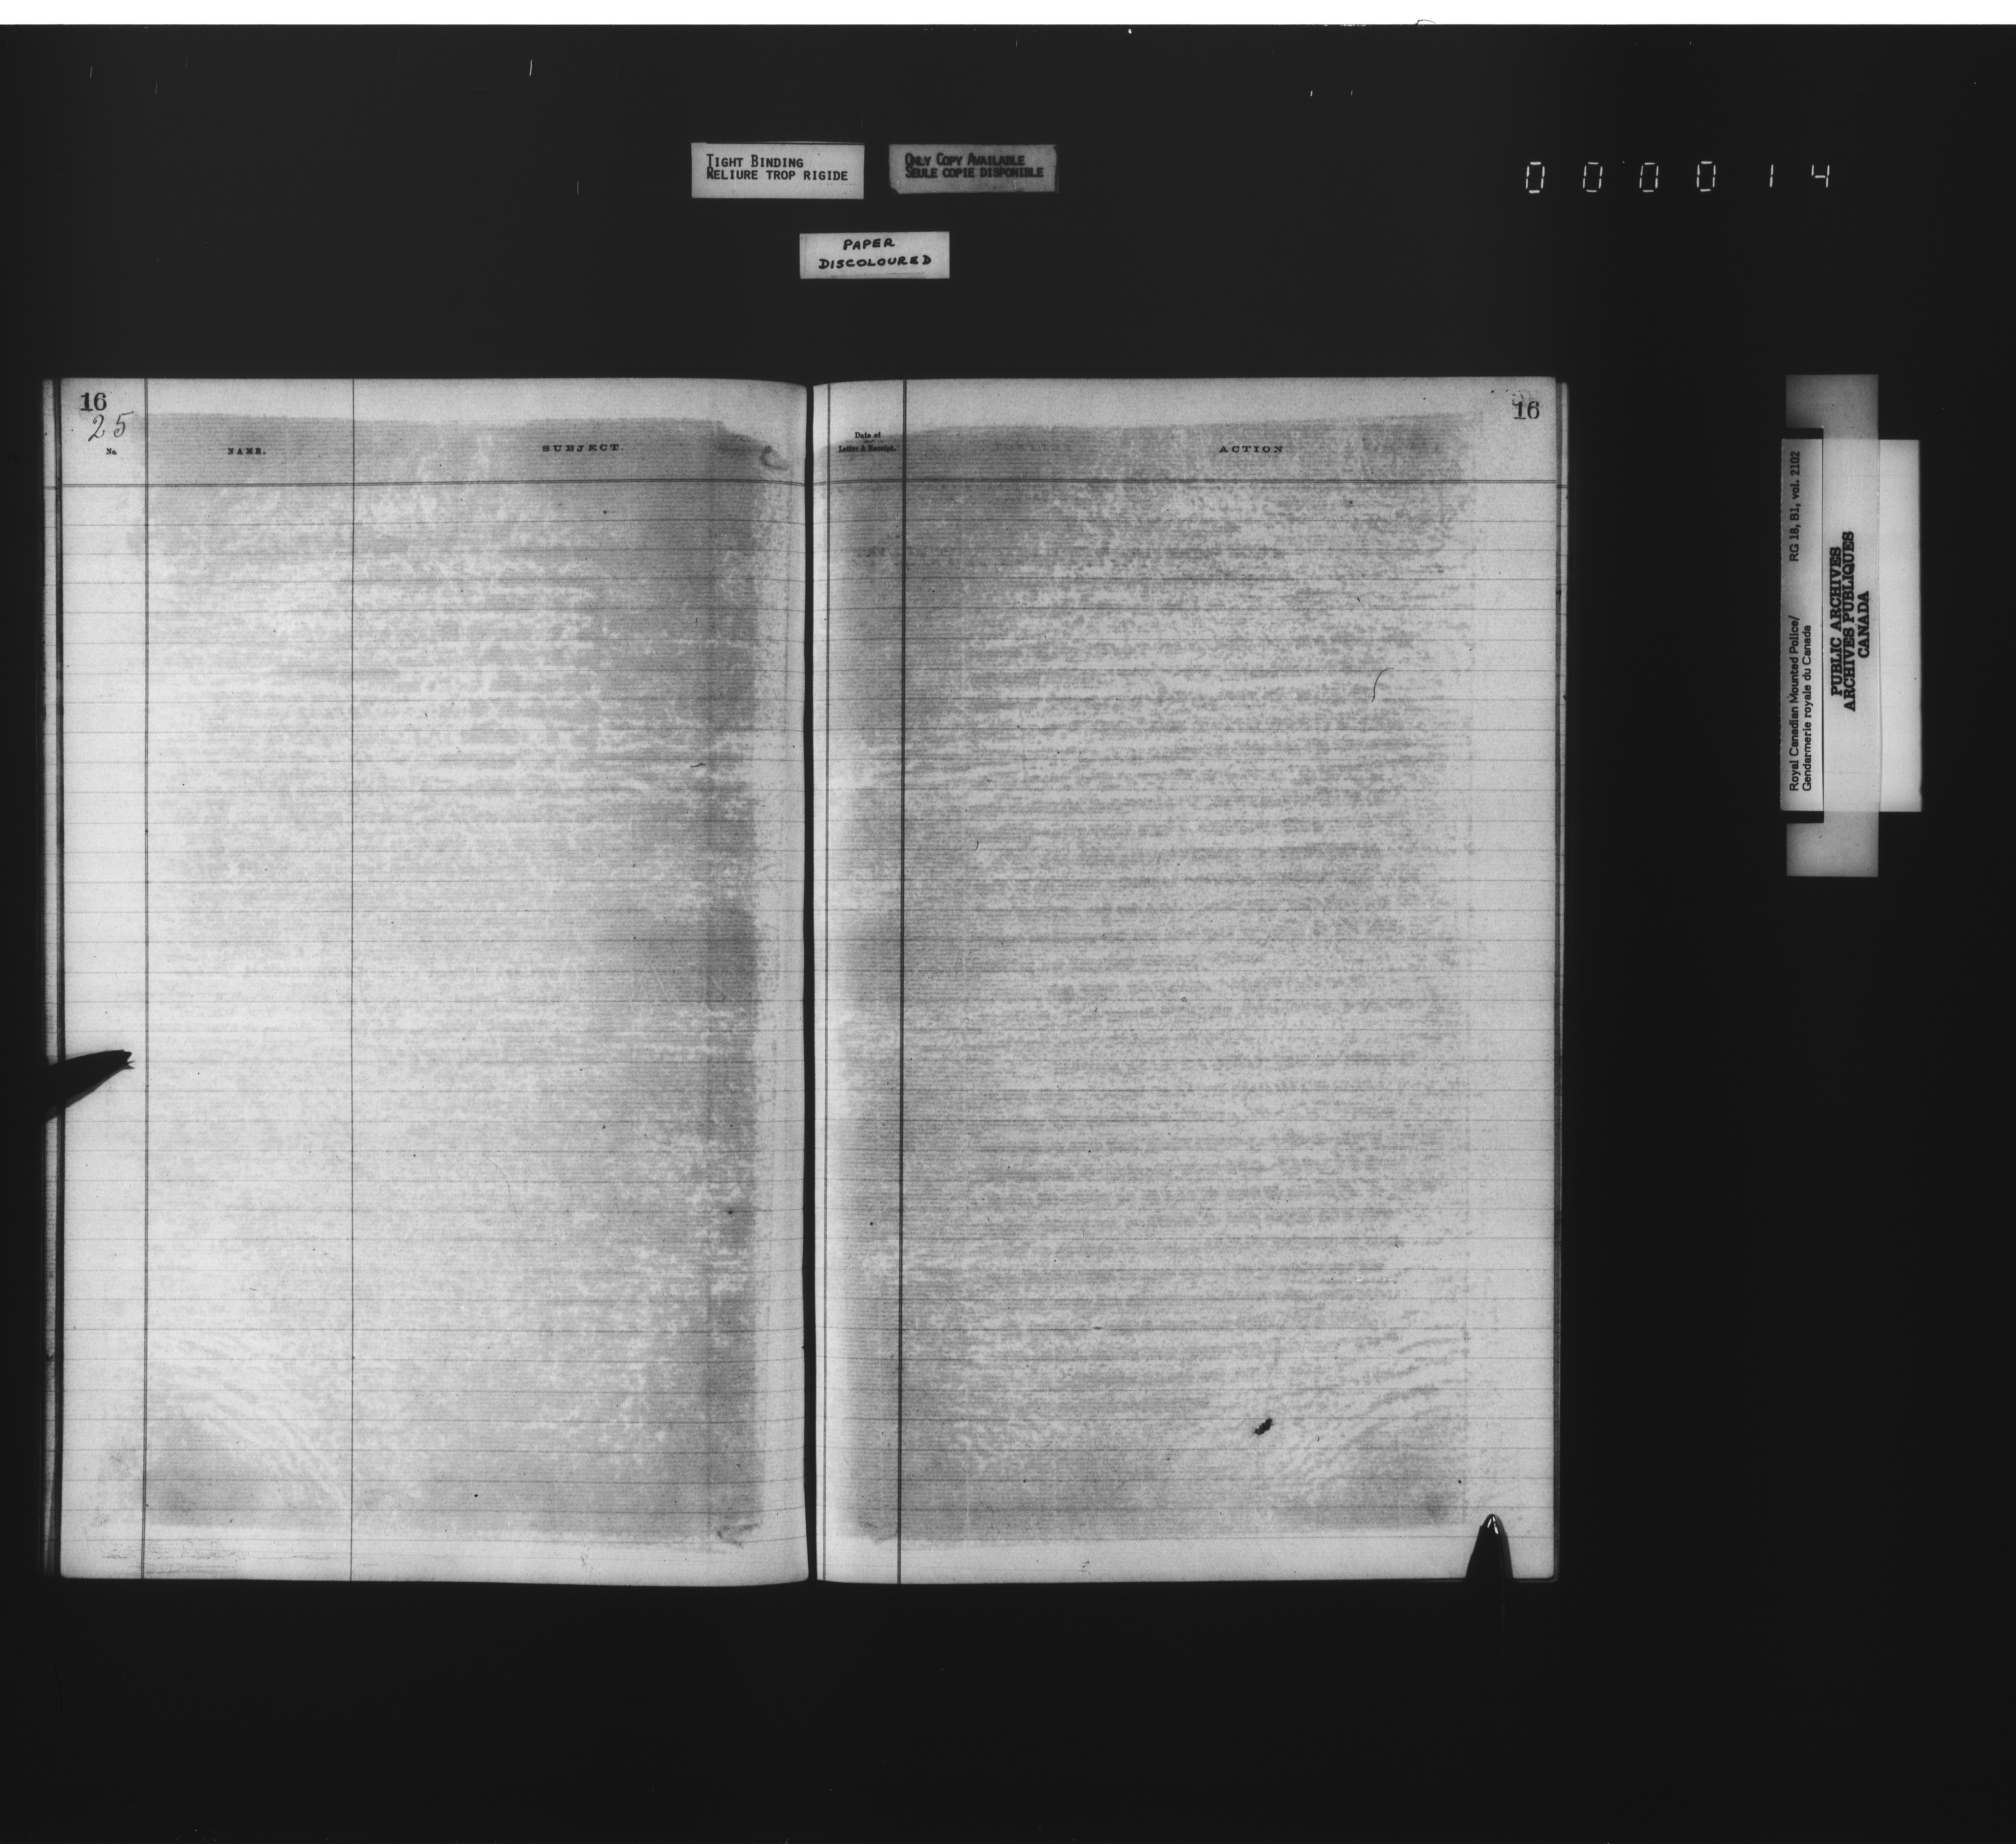 TIGHT BINDING
RELIURE TROP RIGIDE
ONLY COPY AVAILABLE
SEULE COPIE DISPONIBLE
000014
PAPER
DISCOLOURED
16
25
No.
NAME.
SUBJECT.
Date of
Letter & Receipt.
ACTION
16
Royal Canadian Mounted Police/ RG 18, B1, vol. 2102
Gendarmerie royale du Canada
PUBLIC ARCHIVES
ARCHIVES PUBLIQUES
CANADA